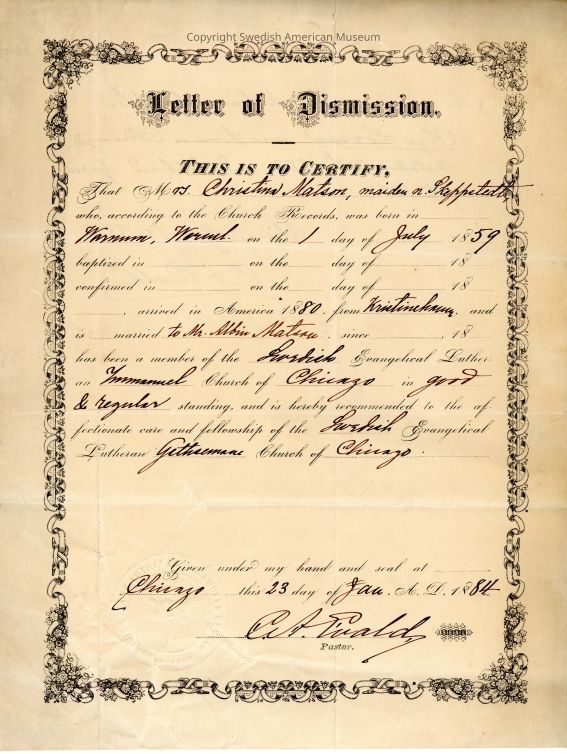 Copyright Swedish American Museum
Letter of Dismission.
THIS IS TO CERTIFY,
That Mrs. Christina Matson, maiden n. Skeppstedt
who, according to the Church Records, was born in
Warnum, Werml. on the 1 day of July 1859
baptized in on the day of 18
confirmed in on the day of 18
, arrived in America 1880, from Kristinehamn, and
is married to Mr. Albin Matson, since 18
has been a member of the Swedish Evangelical Luther
an Immanuel Church of Chicago in good
& regular standing, and is hereby recommended to the af
fectionate care and fellowship of the Swedish Evangelical
Lutheran Gethsemane Church of Chicago.
Given under my hand and seal at
Chicago this 23 day of Jan. A. D. 1884
C. A. Evald
SEAL
Pastor.